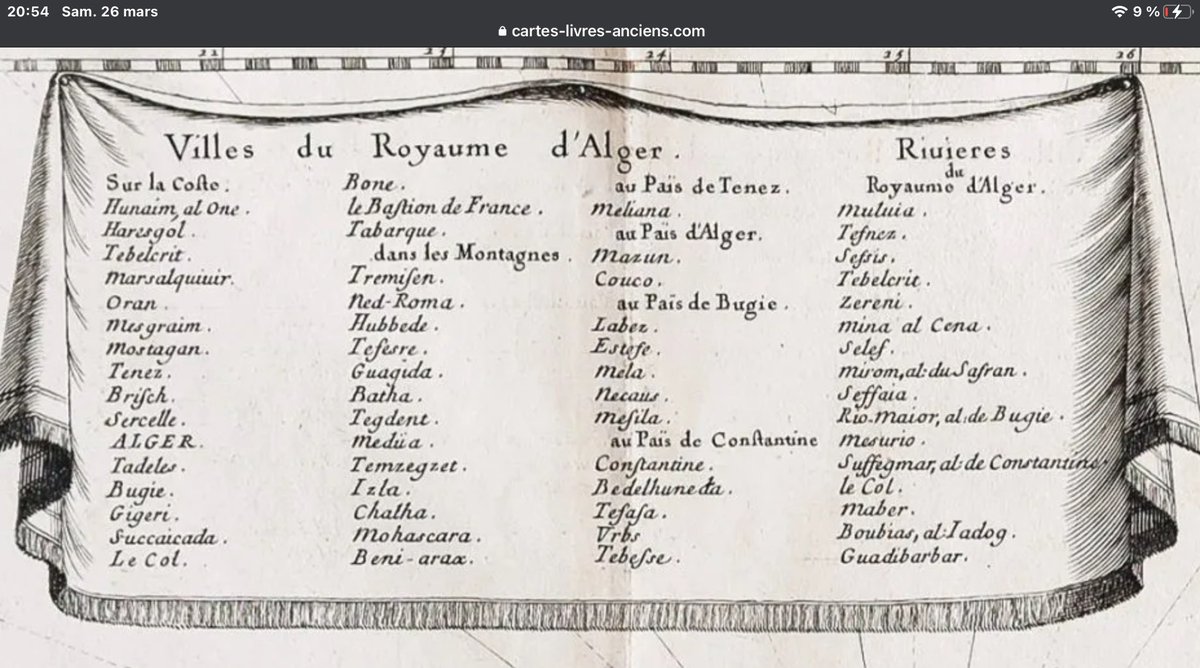 20:54 Sam. 26 mars
9 %
cartes-livres-anciens.com
22 23 24 25 26
Villes du Royaume d'Alger.
Sur la Coste.
Hunaim, al One.
Haresgol.
Tebelcrit.
Marsalquiuir.
Oran.
Mesgraim.
Mostagan.
Tenez.
Brisch.
Sercelle.
ALGER.
Tadeles.
Bugie.
Gigeri.
Succaicada.
Le Col.
Bone.
le Bastion de France.
Tabarque.
dans les Montagnes.
Tremisen.
Ned-Roma.
Hubbede.
Tefesre.
Guagida.
Batha.
Tegdent.
Medüa.
Temzegzet.
Izla.
Chatha.
Mohascara.
Beni-arax.
au Païs de Tenez.
Meliana.
au Païs d'Alger.
Mazun.
Couco.
au Païs de Bugie.
Labez.
Estefe.
Mela.
Necaüs.
Mesila.
au Païs de Constantine
Constantine.
Bedelhuneda.
Tefasa.
Vrbs
Tebesse.
Riuieres
du
Royaume d'Alger.
Muluia.
Tefnez.
Sefsis.
Tebelcrit.
Zereni.
Mina al Cena.
Selef.
Mirom, al: du Safran.
Seffaia.
Rio. Maior, al. de Bugie.
Mesurio.
Suffegmar, al: de Constantine.
le Col.
Maber.
Boubias, al: Iadog.
Guadibarbar.